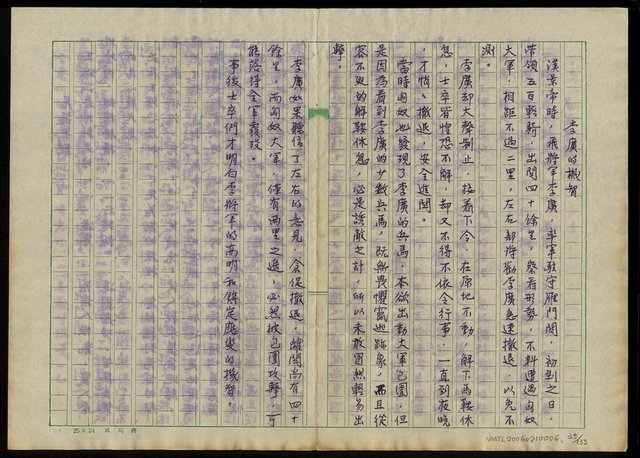 李廣的機智
漢景帝時，飛將軍李廣，率軍駐守雁門關，初到之日，
帶領五百輕騎，出關四十餘里，察看形勢，不料遭遇匈奴
大軍，相距不過二里，左右部將勸李廣急速撤退，以免不
測。
李廣却大聲制止，接着下令，在原地不動，解下馬鞍休
息，士卒皆惶恐不解，却又不得不依令行事，一直到夜晚
，才悄悄撤退，安全進關。
當時匈奴也發現了李廣的兵馬，本欲出動大軍包圍，但
是因為看到李廣的少數兵馬，既無畏懼竄逃跡象，而且從
容不迫的解鞍休息，必是誘敵之計，所以未敢冒然輕易出
擊。
李廣如果聽信了左右的意見，倉促撤退，離關尚有四十
餘里，而匈奴大軍，僅有兩里之遙，必然被包圍攻擊，可
能落得全軍覆沒。
事後士卒們才明白李將軍的高明和鎮定應變的機智。
25×24
NMTL20060210006
35/133